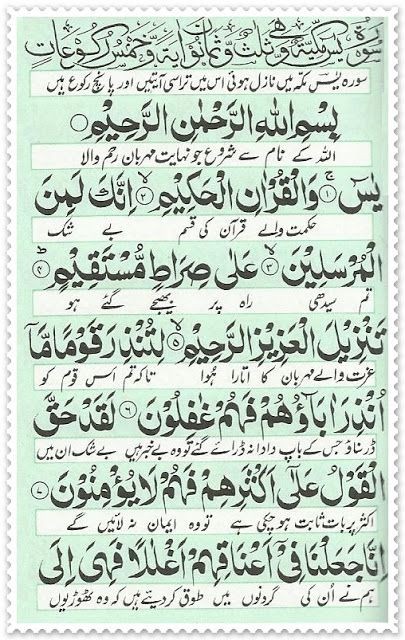 سورة يس مكية وهي ثلث وثمانون اية وخمس ركوعات
سورہ یٰسٓ مکہ میں نازل ہوئی اس میں تراسی آیتیں اور پانچ رکوع ہیں
بِسْمِ اللهِ الرَّحْمٰنِ الرَّحِيْمِ
اللہ کے نام سے شروع جو نہایت مہربان رحم والا
يٰسٓ ۚ﴿۱﴾ وَالْقُرْاٰنِ الْحَكِيْمِ ۙ﴿۲﴾ اِنَّكَ لَمِنَ
حکمت والے قرآن کی قسم بے شک
الْمُرْسَلِيْنَ ۙ﴿۳﴾ عَلٰى صِرَاطٍ مُّسْتَقِيْمٍ ؕ﴿۴﴾
تم سیدھی راہ پر بھیجے گئے ہو
تَنْزِيْلَ الْعَزِيْزِ الرَّحِيْمِ ۙ﴿۵﴾ لِتُنْذِرَ قَوْمًا مَّاۤ
عزت والے مہربان کا اتارا ہوا تاکہ تم اس قوم کو
اُنْذِرَ اٰبَآؤُهُمْ فَهُمْ غٰفِلُوْنَ ﴿۶﴾ لَقَدْ حَقَّ
ڈر سناؤ جس کے باپ دادا نہ ڈرائے گئے تو وہ بے خبر ہیں بے شک ان میں
الْقَوْلُ عَلٰۤى اَكْثَرِهِمْ فَهُمْ لَا يُؤْمِنُوْنَ ﴿۷﴾
اکثر پر بات ثابت ہو چکی ہے تو وہ ایمان نہ لائیں گے
اِنَّا جَعَلْنَا فِيْۤ اَعْنَاقِهِمْ اَغْلٰلًا فَهِىَ اِلَى
ہم نے اُن کی گردنوں میں طوق کردیئے ہیں کہ وہ ٹھوڑیوں